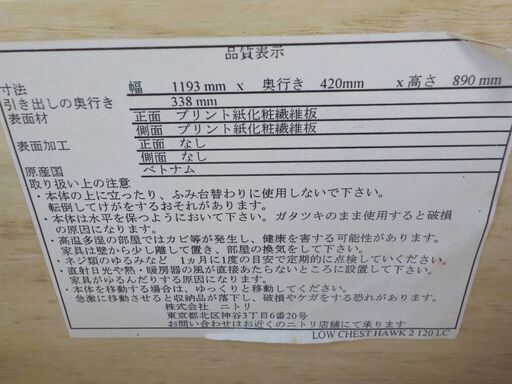 品質表示
寸法 幅 1193 mm x 奥行き 420mm x 高さ 890 mm
引き出しの奥行き 338 mm
表面材 正面 プリント紙化粧繊維板
側面 プリント紙化粧繊維板
表面加工 正面 なし
側面 なし
原産国 ベトナム
取り扱い上の注意
・本体の上に立ったり、ふみ台替わりに使用しないで下さい。
転倒してけがをするおそれがあります。
・本体は水平を保つようにおいて下さい。ガタツキのまま使用すると破損
の原因になります。
・高温多湿の部屋ではカビ等が発生し、健康を害する可能性があります。
家具は壁から少し離して置き、部屋の換気をして下さい。
・ネジ類のゆるみなど 1ヵ月に1度の目安で定期的に点検してください。
・直射日光や熱・暖房器の風が直接あたらないところに設置して下さい。
家具がゆるんだりする原因になります。
・本体を移動する場合は、ゆっくりと移動してください。
急激に移動させると収納品が落下し、破損やケガをする恐れがあります。
株式会社 ニトリ
東京都北区神谷3丁目6番20号
お問い合わせはお近くのニトリ店舗にて承ります
LOW CHEST HAWK 2 120 LC